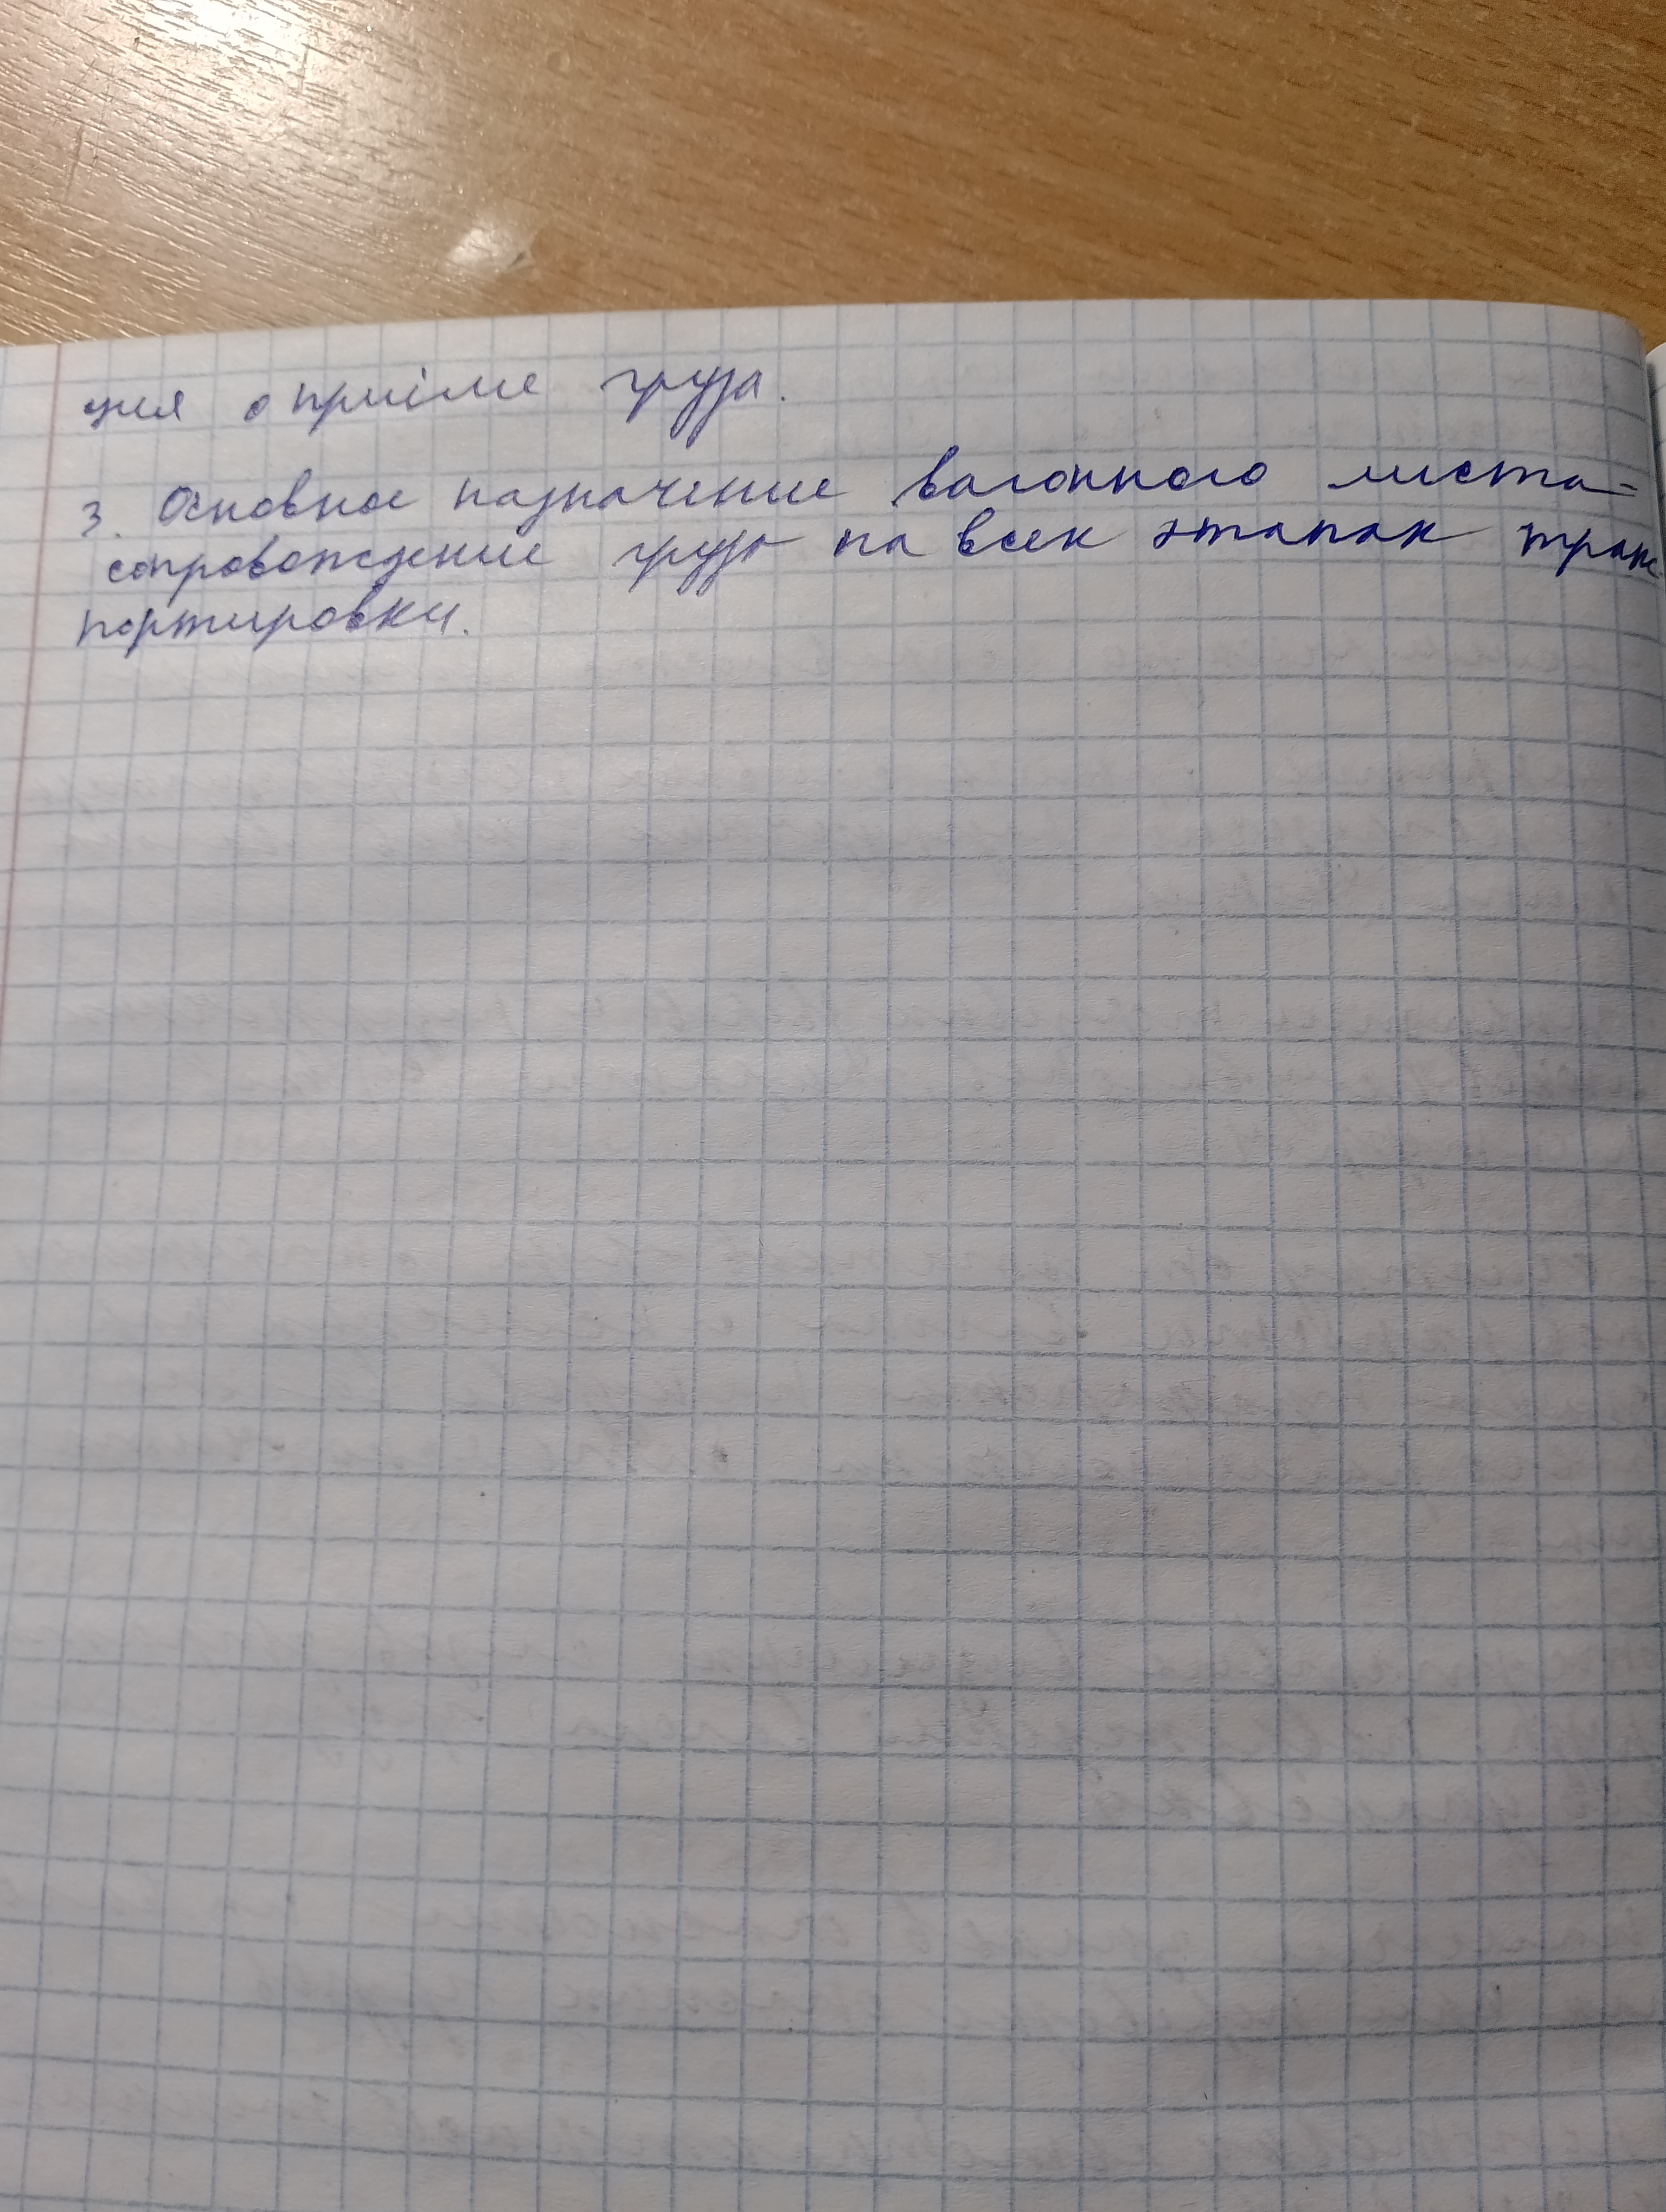 ция о приёме груза.
3. Основное назначение вагонного листа-
сопровождение груза на всех этапах транс
портировки.